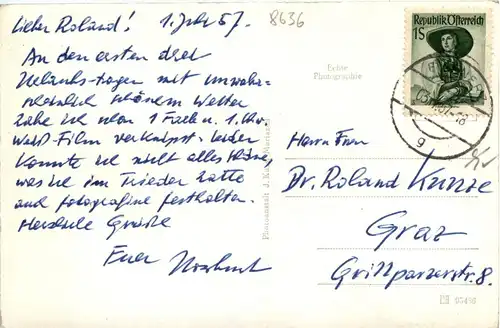 Lieber Roland! 1. Juli 57.
8636
An den ersten drei
Urlaubs-tagen mit unwahr-
scheinlich schönem Wetter
habe ich schon 1 Farb u. 1 Schw.
Weiß-Film verknipst. Leider
konnte ich nicht alles
was ich im Trieder hatte
auch fotografisch festhalten.
Herzliche Grüße
Euer Norbert
Echte
Photographie
Republik Österreich
1S
Herrn Frau
Dr. Roland Kunze
Graz
Grillparzerstr. 8.